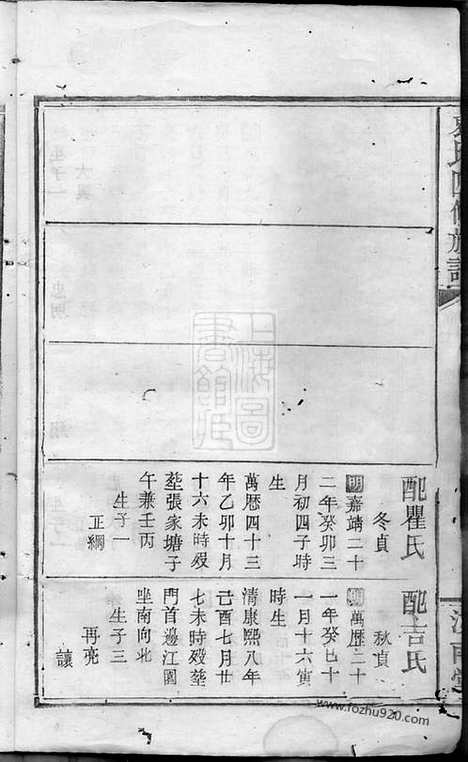 氏四修族譜
配瞿氏
冬貞
明嘉靖二十
二年癸卯三
月初四子時
生
萬曆四十三
年乙卯十月
十六未時殁
塟張家塘子
午兼壬丙
生子一
正綱
配氏
秋貞
明萬歷二十
一年癸巳十
一月十六寅
時生
清康熙八年
己酉七月廿
七未時殁塟
門首邊江園
坐南向北
生子三
再亮
讓
上海圖
書館藏
www.fozhu920.com